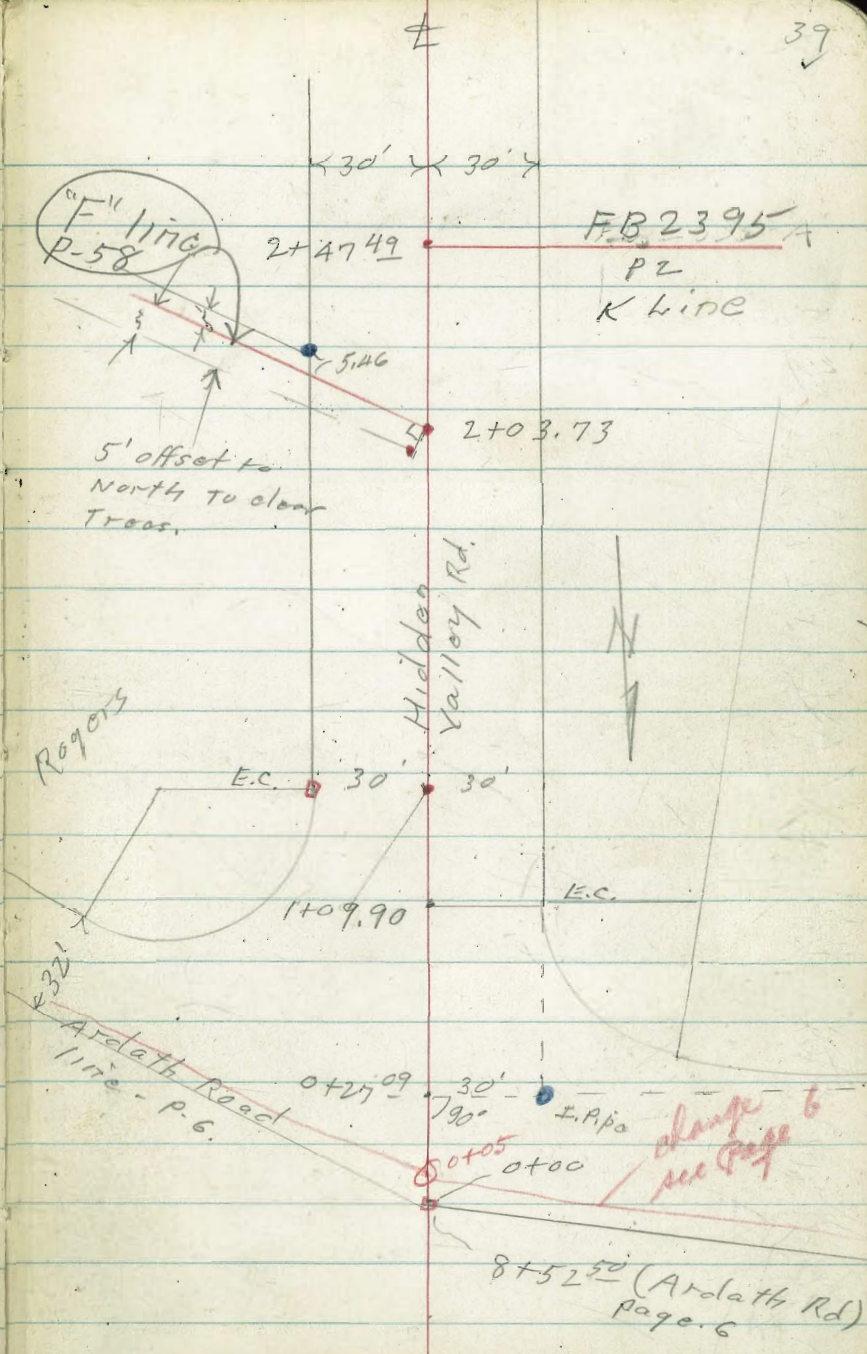 ℄
39
30' 30'
"F" line
P-58
2+47 49
FB 2395
P 2
K Line
5.46
2+03.73
5' offset to
North To clear
Trees.
Hidden
Valley Rd.
N
Rogers
E.C. 30' 30'
E.C.
1+09.90
32'
Ardath Road
line - P-6.
0+27 09 30'
90°
I.Pipe
0+05
0+00
change
see Page 6
8+52 50 (Ardath Rd)
page. 6